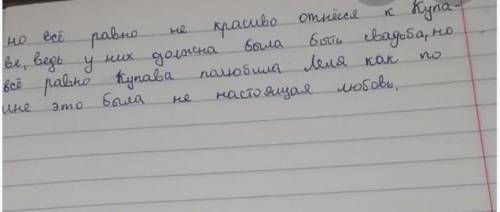 но всё равно не красиво отнёсся к Купа-
ве, ведь у них должна была быть свадьба, но
всё равно Купава полюбила Леля как по
мне это была не настоящая любовь.